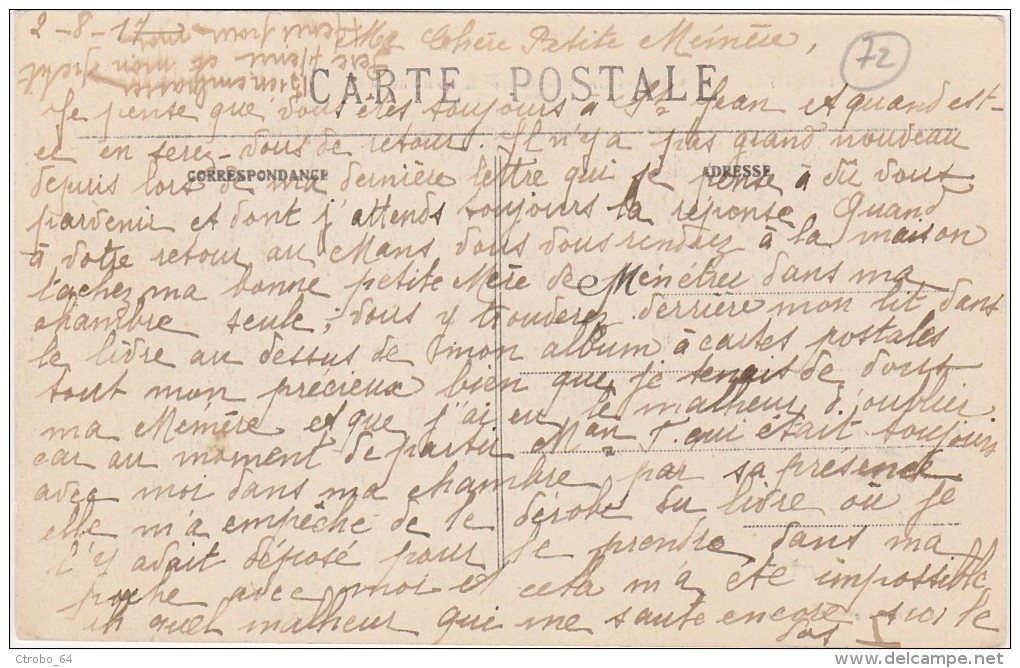 2-8-17
Ma Chère Petite Mémère,
72
CARTE POSTALE
Je pense que vous êtes toujours à St Jean et quand est-
ce en serez-vous de retour. Il n'y a pas grand nouveau
CORRESPONDANCE
ADRESSE
depuis lors de ma dernière lettre qui je pense à dû vous
parvenir et dont j'attends toujours la réponse Quand
à votre retour au Mans vous vous rendrez à la maison
tachez ma bonne petite Mère de Ménétrer dans ma
chambre seule, vous y trouverez derrière mon lit dans
le livre au dessus de mon album à cartes postales
tout mon precieux bien que je tenais de vous
ma Mémère et que j'ai eu le malheur d'oublier
car au moment de partir Man T. qui était toujours
avec moi dans ma chambre par sa présence
elle m'a empêché de le dérobé du livre où je
l'y avait déposé pour le prendre dans ma
poche avec moi et cela m'a été impossible
quel malheur qui me saute encore sur le